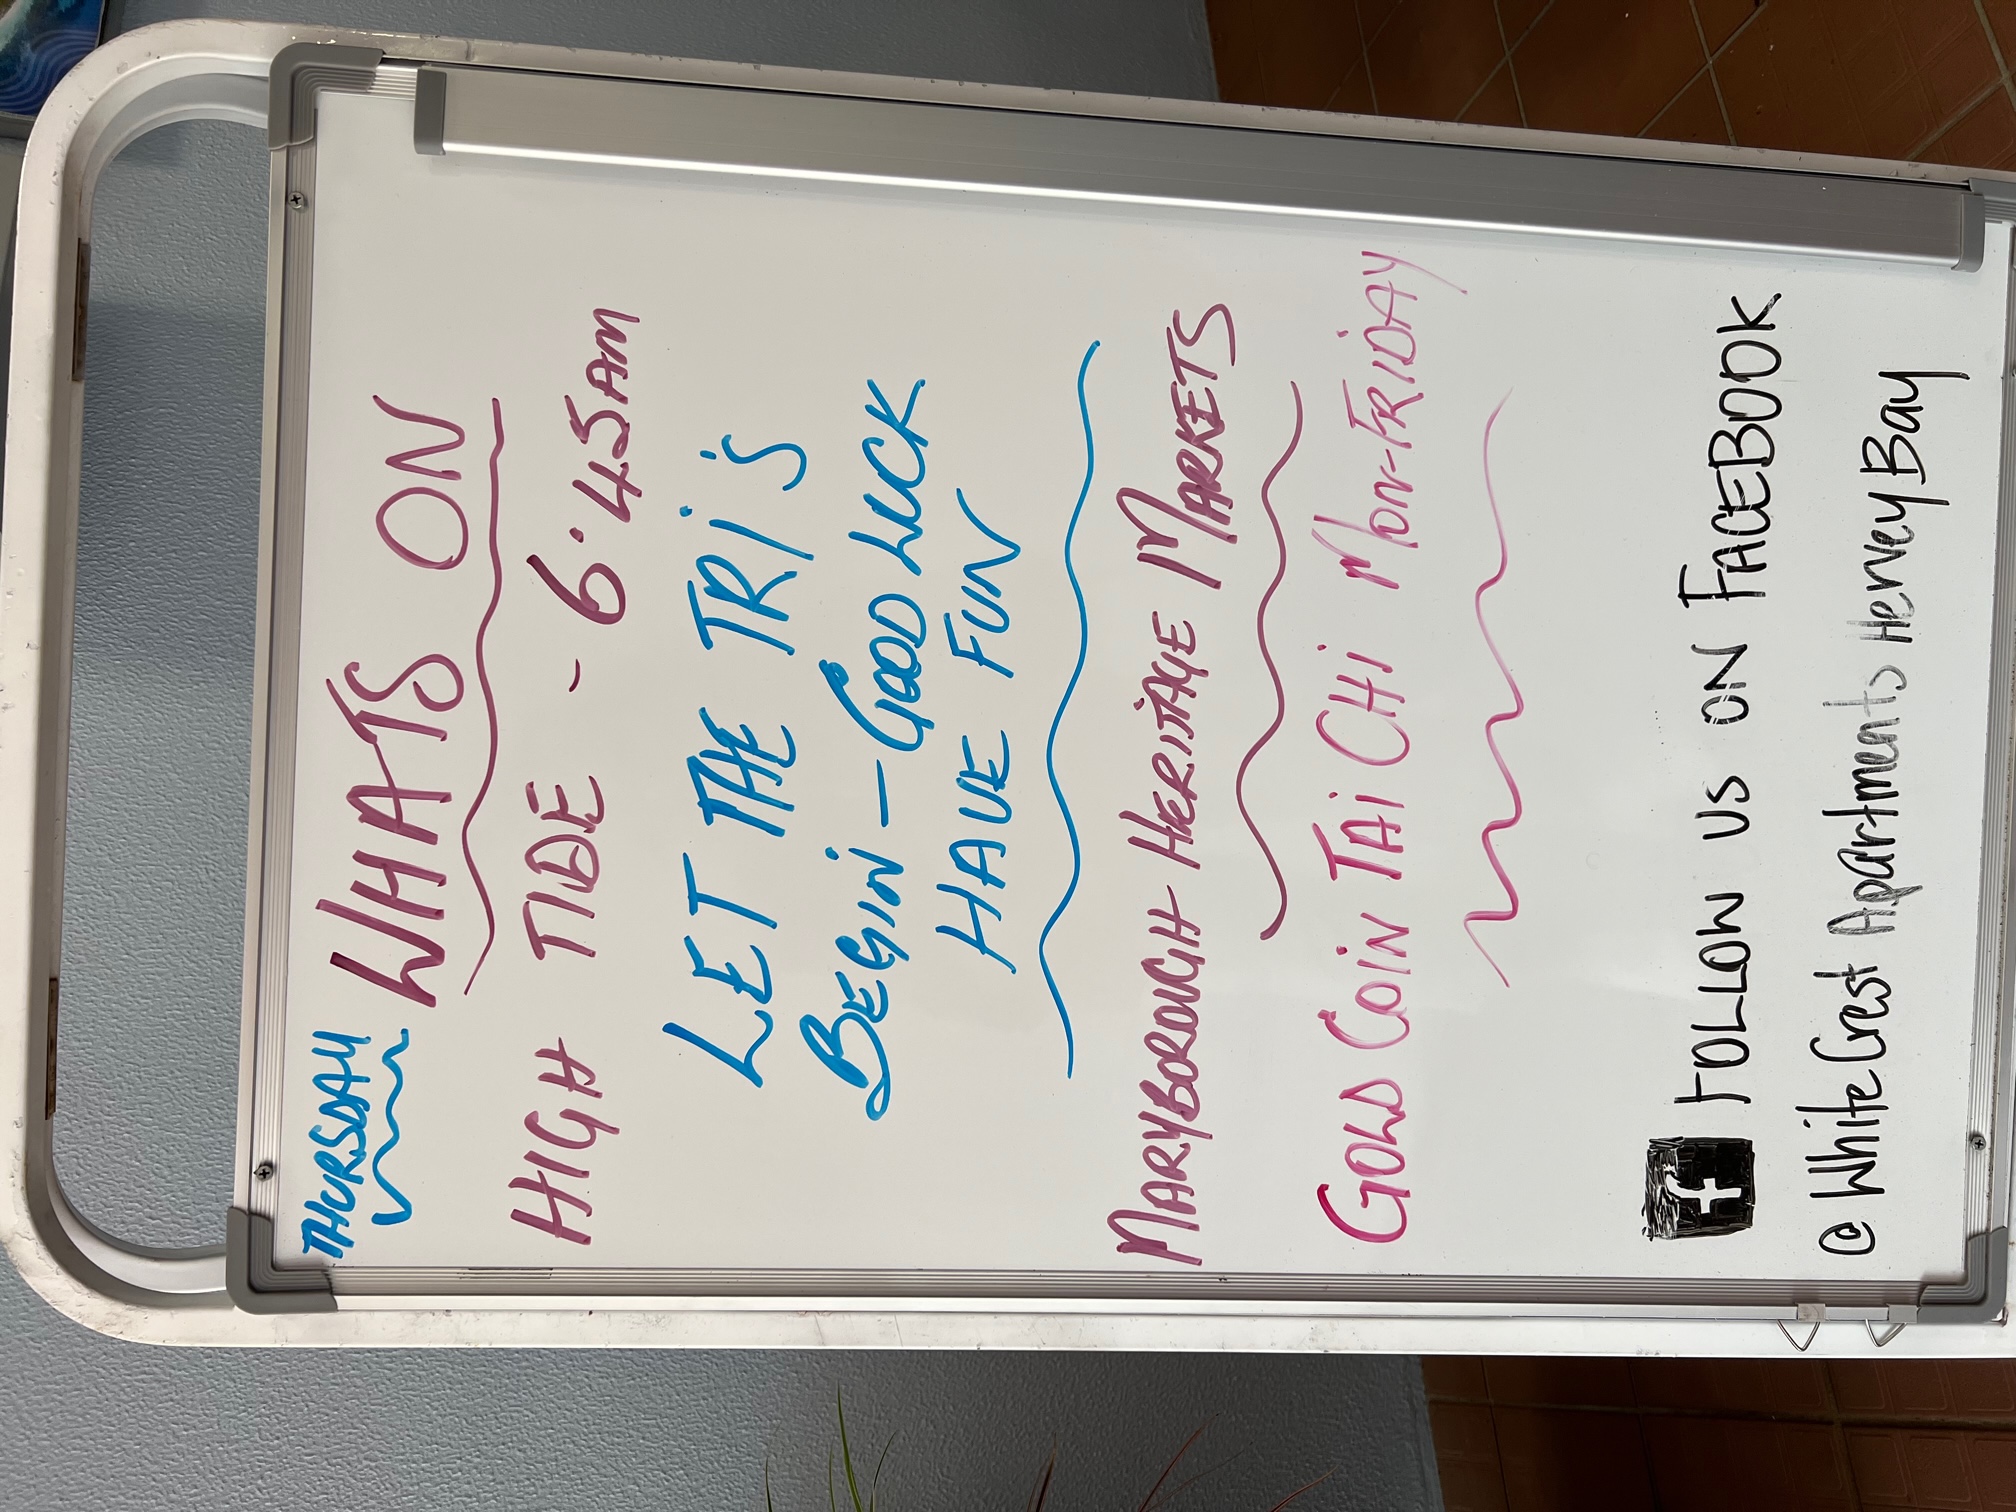 THURSDAY
WHATS ON
HIGH TIDE - 6.45AM
LET THE TRI'S
BEGIN - GOOD LUCK
HAVE FUN
MARYBOROUGH HERITAGE MARKETS
GOLD COIN TAI CHI MON-FRIDAY
f FOLLOW US ON FACEBOOK
@ White Crest Apartments Hervey Bay